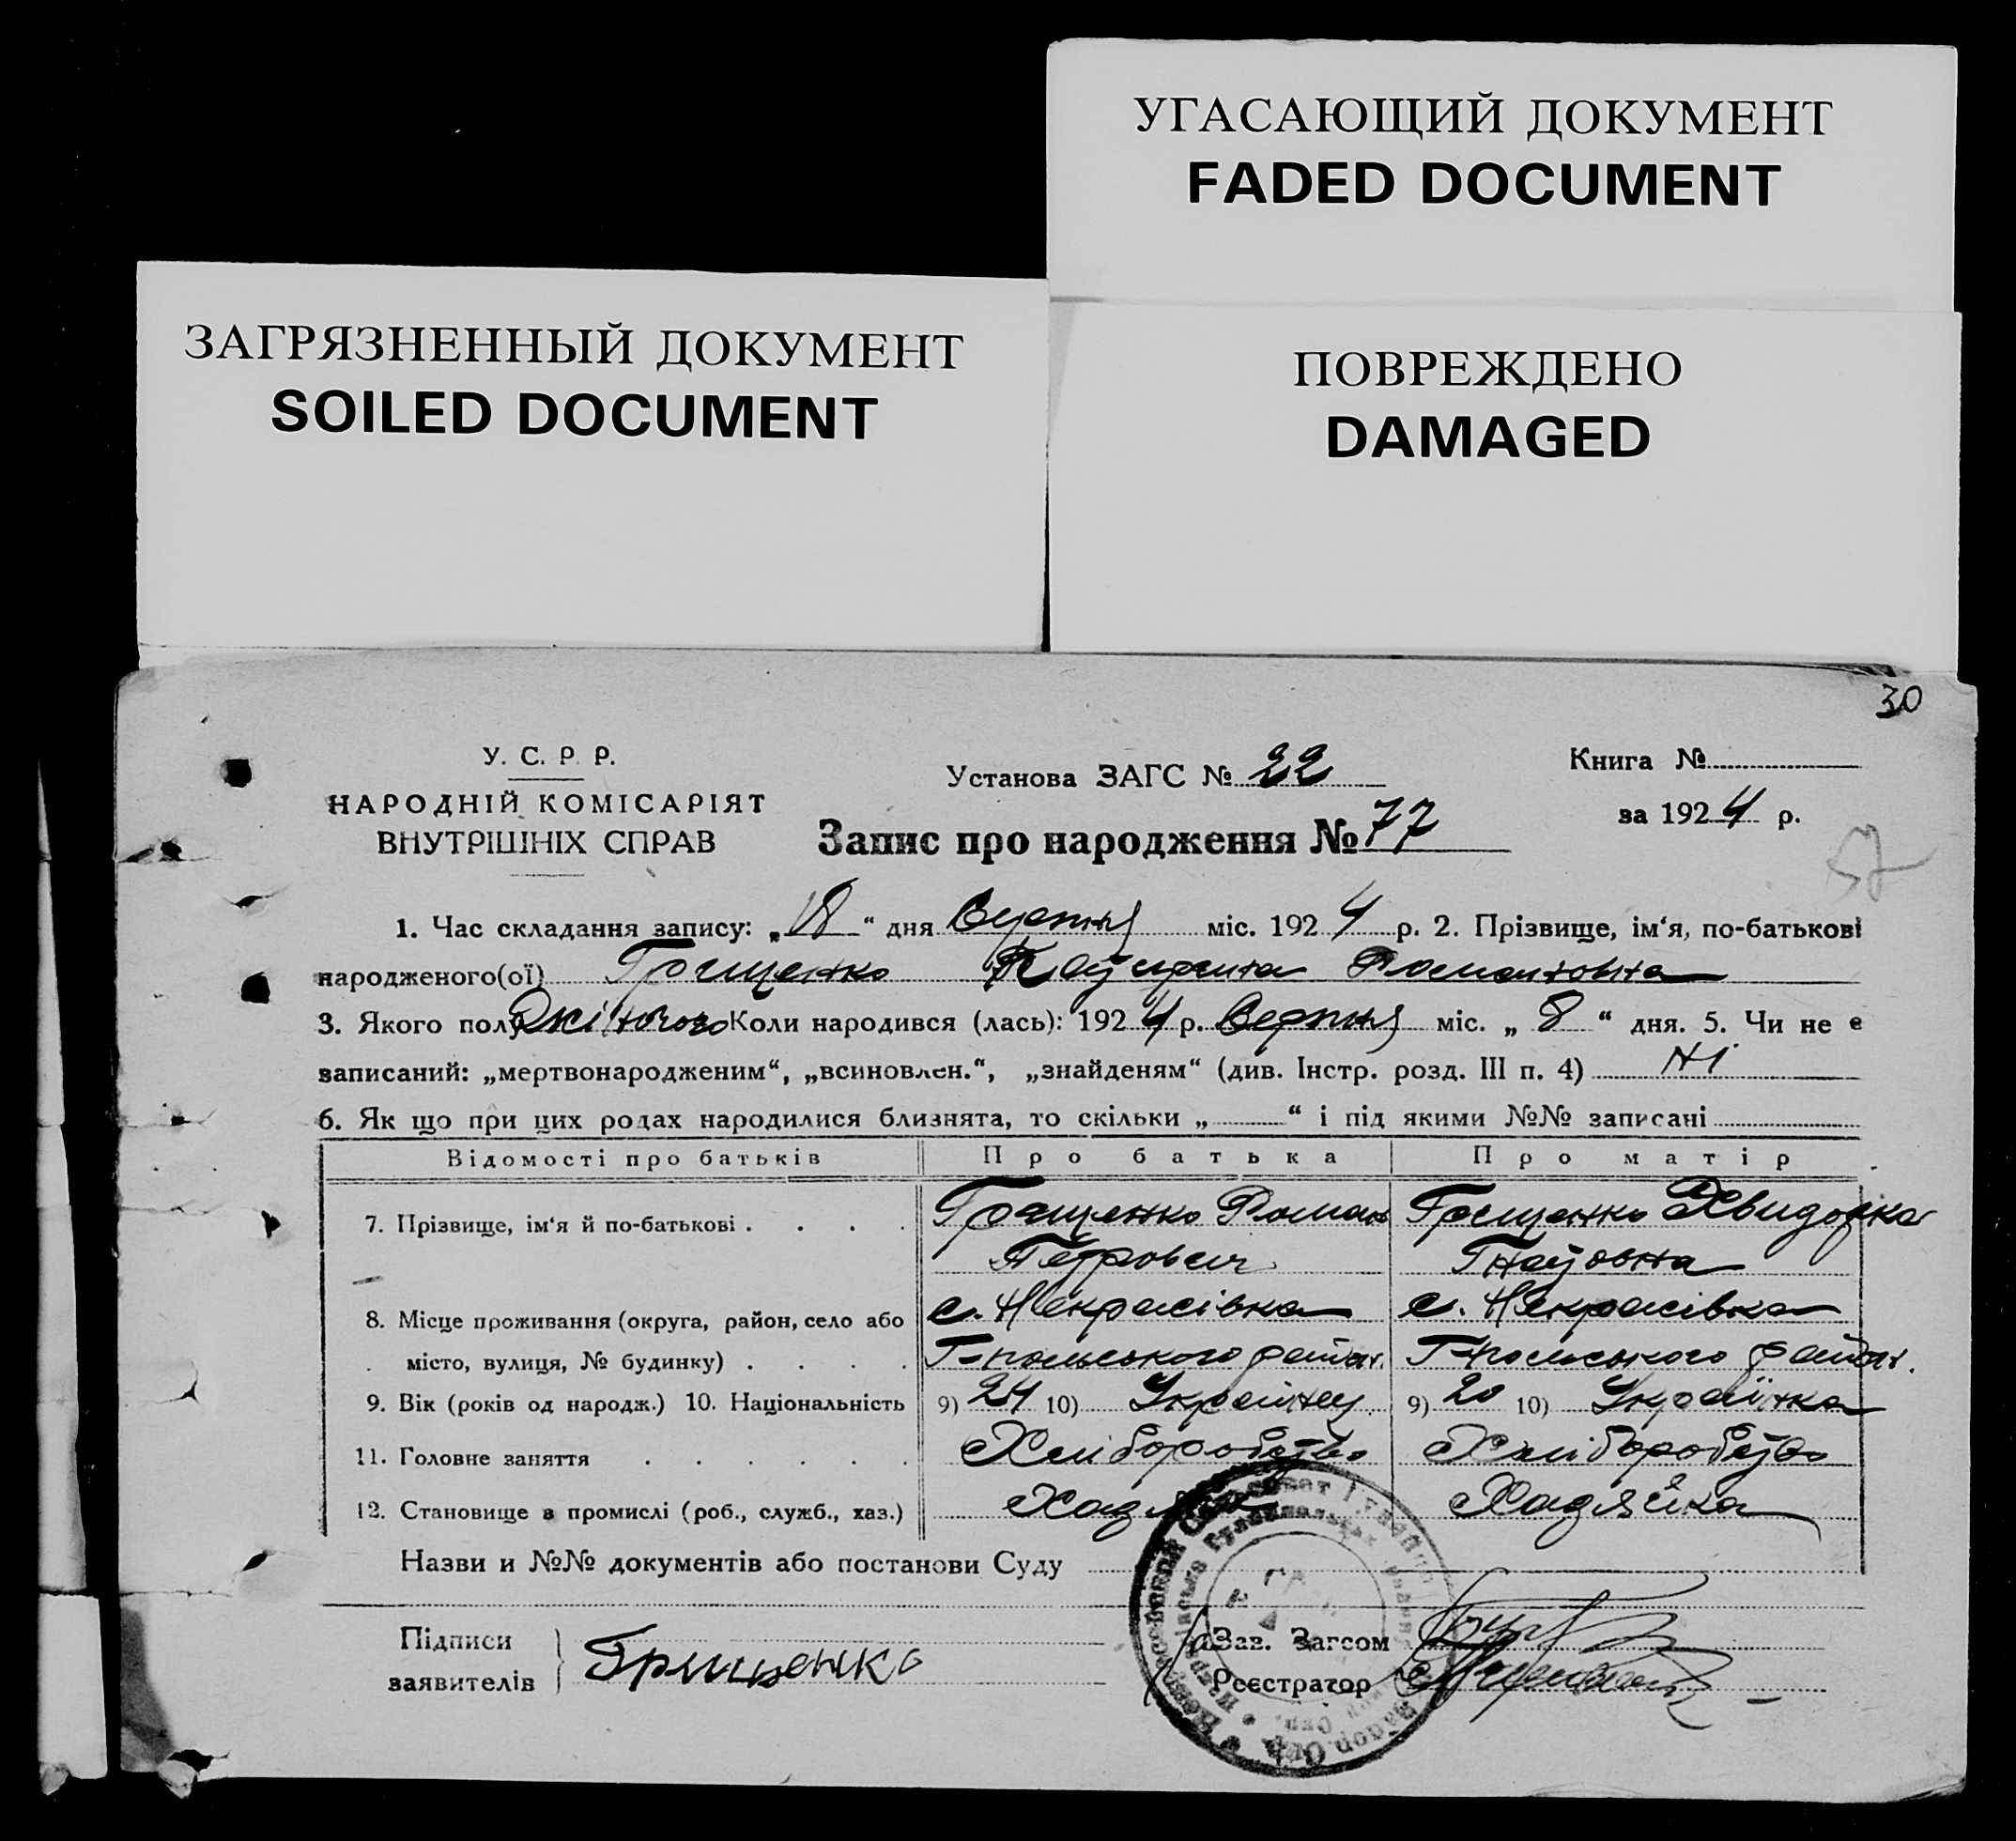 УГАСАЮЩИЙ ДОКУМЕНТ
FADED DOCUMENT
ЗАГРЯЗНЕННЫЙ ДОКУМЕНТ
SOILED DOCUMENT
ПОВРЕЖДЕНО
DAMAGED
30
У. С. Р. Р.
НАРОДНІЙ КОМІСАРІЯТ
ВНУТРІШНІХ СПРАВ
Установа ЗАГС № 22
Запис про народження № 77
Книга №
за 1924 р.
57
1. Час складання запису: „18“ дня Серпня міс. 1924 р. 2. Прізвище, ім‘я, по-батькові
народженого(ої) Грищенко Романовна
3. Якого полу Жіночого Коли народився (лась): 1924 р. Серпня міс. „8“ дня. 5. Чи не є
записаний: „мертвонародженим“, „всиновлен.“, „знайденям“ (див. Інстр. розд. III п. 4) Ні
6. Як що при цих родах народилися близнята, то скільки „ “ і під якими №№ записані
Відомості про батьків Про батька Про матір
7. Прізвище, ім‘я й по-батькові Грищенко Роман Грищенко Явидофка
Петрович Гнатовна
8. Місце проживання (округа, район, село або с. Некрасівка с. Некрасівка
місто, вулиця, № будинку) Г-польського район. Г-польського район.
9. Вік (років од народж.) 10. Національність 9) 24 10) Українец 9) 20 10) Українка
11. Головне заняття Хліборобство Хліборобство
12. Становище в промислі (роб., служб., хаз.) Хадяйка
Назви и №№ документів або постанови Суду
Підписи
заявителів
Грищенко
Зав. Загсом
Реєстратор